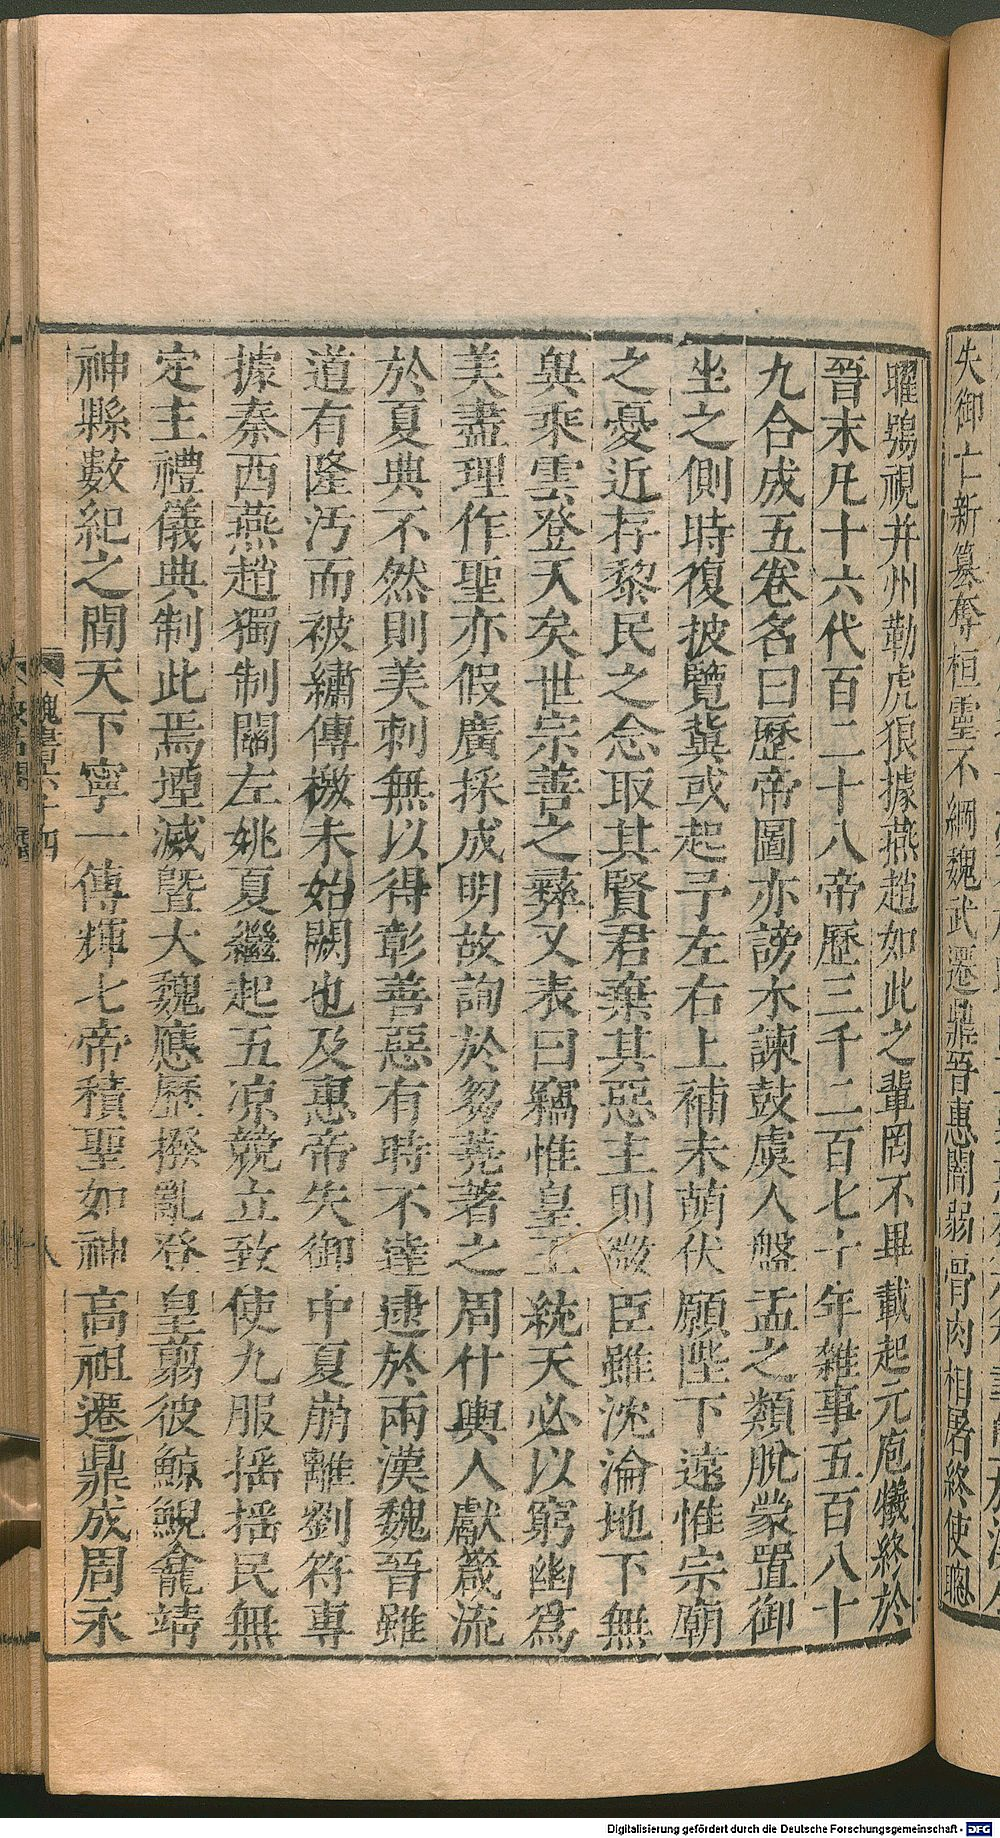 失御亡新簒奪桓靈不綱魏武遷鼎晉惠闇弱骨肉相屠終使聰
曜鴞視并州勒虎狼據燕趙如此之輩罔不畢載起元庖犧終於
晉末凡十六代百二十八帝歷三千二百七十年雜事五百八十
九合成五卷名曰歷帝圖亦謗木諫鼓虞人盤盂之類脫蒙置御
坐之側時復披覽冀或起予左右上補未萌伏願陛下遠惟宗廟
之憂近存黎民之念取其賢君棄其惡主則微臣雖沈淪地下無
異乘雲登天矣世宗善之彝又表曰竊惟皇王統天必以窮幽爲
美盡理作聖亦假廣採成明故詢於芻蕘著之周什輿人獻箴流
於夏典不然則美刺無以得彰善惡有時不達逮於兩漢魏晉雖
道有隆汚而被繡傳檄未始闕也及惠帝失御中夏崩離劉符專
據秦西燕趙獨制關左姚夏繼起五凉競立致使九服搖搖民無
定主禮儀典制此焉堙滅暨大魏應歷撥亂登皇翦彼鯨鯢龕靖
神縣數紀之間天下寧一傳輝七帝積聖如神高祖遷鼎成周永
魏書卷六十四
八